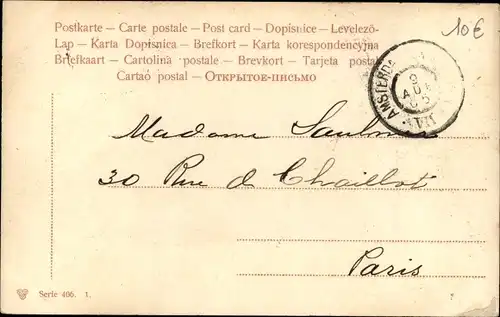 Postkarte – Carte postale – Post card – Dopisnice – Levelezö-
Lap – Karta Dopisnica – Brefkort – Karta korespondencyjna
Briefkaart – Cartolina postale – Brevkort – Tarjeta postal
Cartaó postal – Открытое-письмо
10€
AMSTERDA
Madame
30 Rue d Chaillot
Paris
Serie 466. 1.